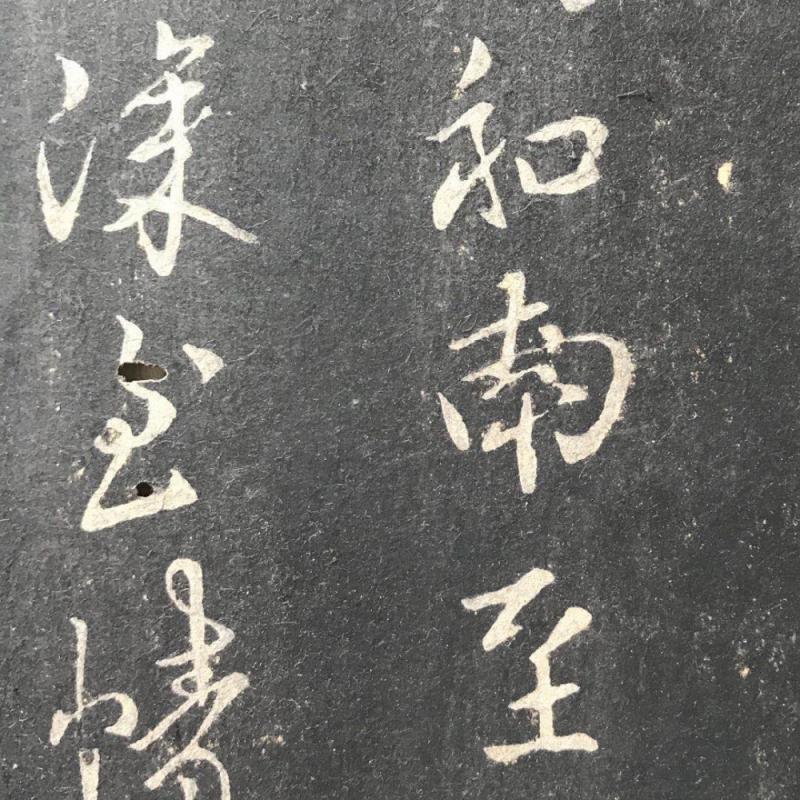 和南至
深情